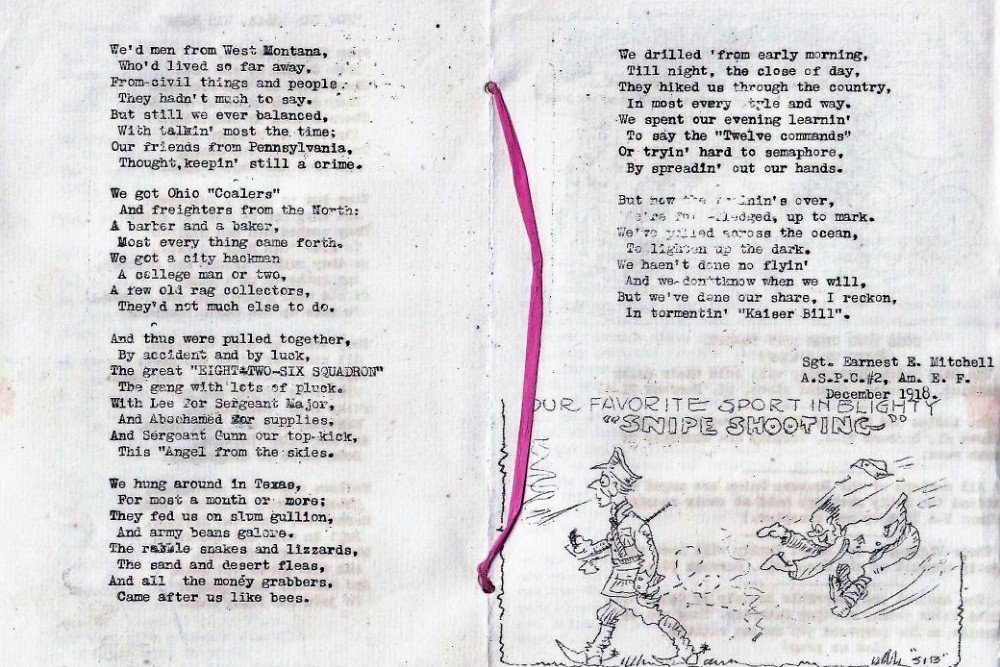 We'd men from West Montana,
Who'd lived so far away,
From civil things and people.
They hadn't much to say.
But still we ever balanced,
With talkin' most the time;
Our friends from Pennsylvania,
Thought,keepin' still a crime.
We got Ohio "Coalers"
And freighters from the North:
A barber and a baker,
Most every thing came forth.
We got a city hackman
A college man or two,
A few old rag collectors,
They'd not much else to do.
And thus were pulled together,
By accident and by luck,
The great "EIGHT-TWO-SIX SQUADRON"
The gang with lots of pluck.
With Lee for Sergeant Major,
And Abschamed for supplies,
And Sergeant Gunn our top-kick,
This "Angel from the skies.
We hung around in Texas,
For most a month or more;
They fed us on slum gullion,
And army beans galore.
The rattle snakes and lizzards,
The sand and desert fleas,
And all the money grabbers,
Came after us like bees.
We drilled 'from early morning,
Till night, the close of day,
They hiked us through the country,
In most every style and way.
We spent our evening learnin'
To say the "Twelve commands"
Or tryin' hard to semaphore,
By spreadin' out our hands.
But now the trainin's over,
We're full-fledged, up to mark.
We've pulled across the ocean,
To lighten up the dark.
We haen't done no flyin'
And we-don'tknow when we will,
But we've done our share, I reckon,
In tormentin' "Kaiser Bill".
Sgt. Earnest E. Mitchell
A.S.P.C.#2, Am. E. F.
December 1918.
OUR FAVORITE SPORT IN BLIGHTY
"SNIPE SHOOTING"